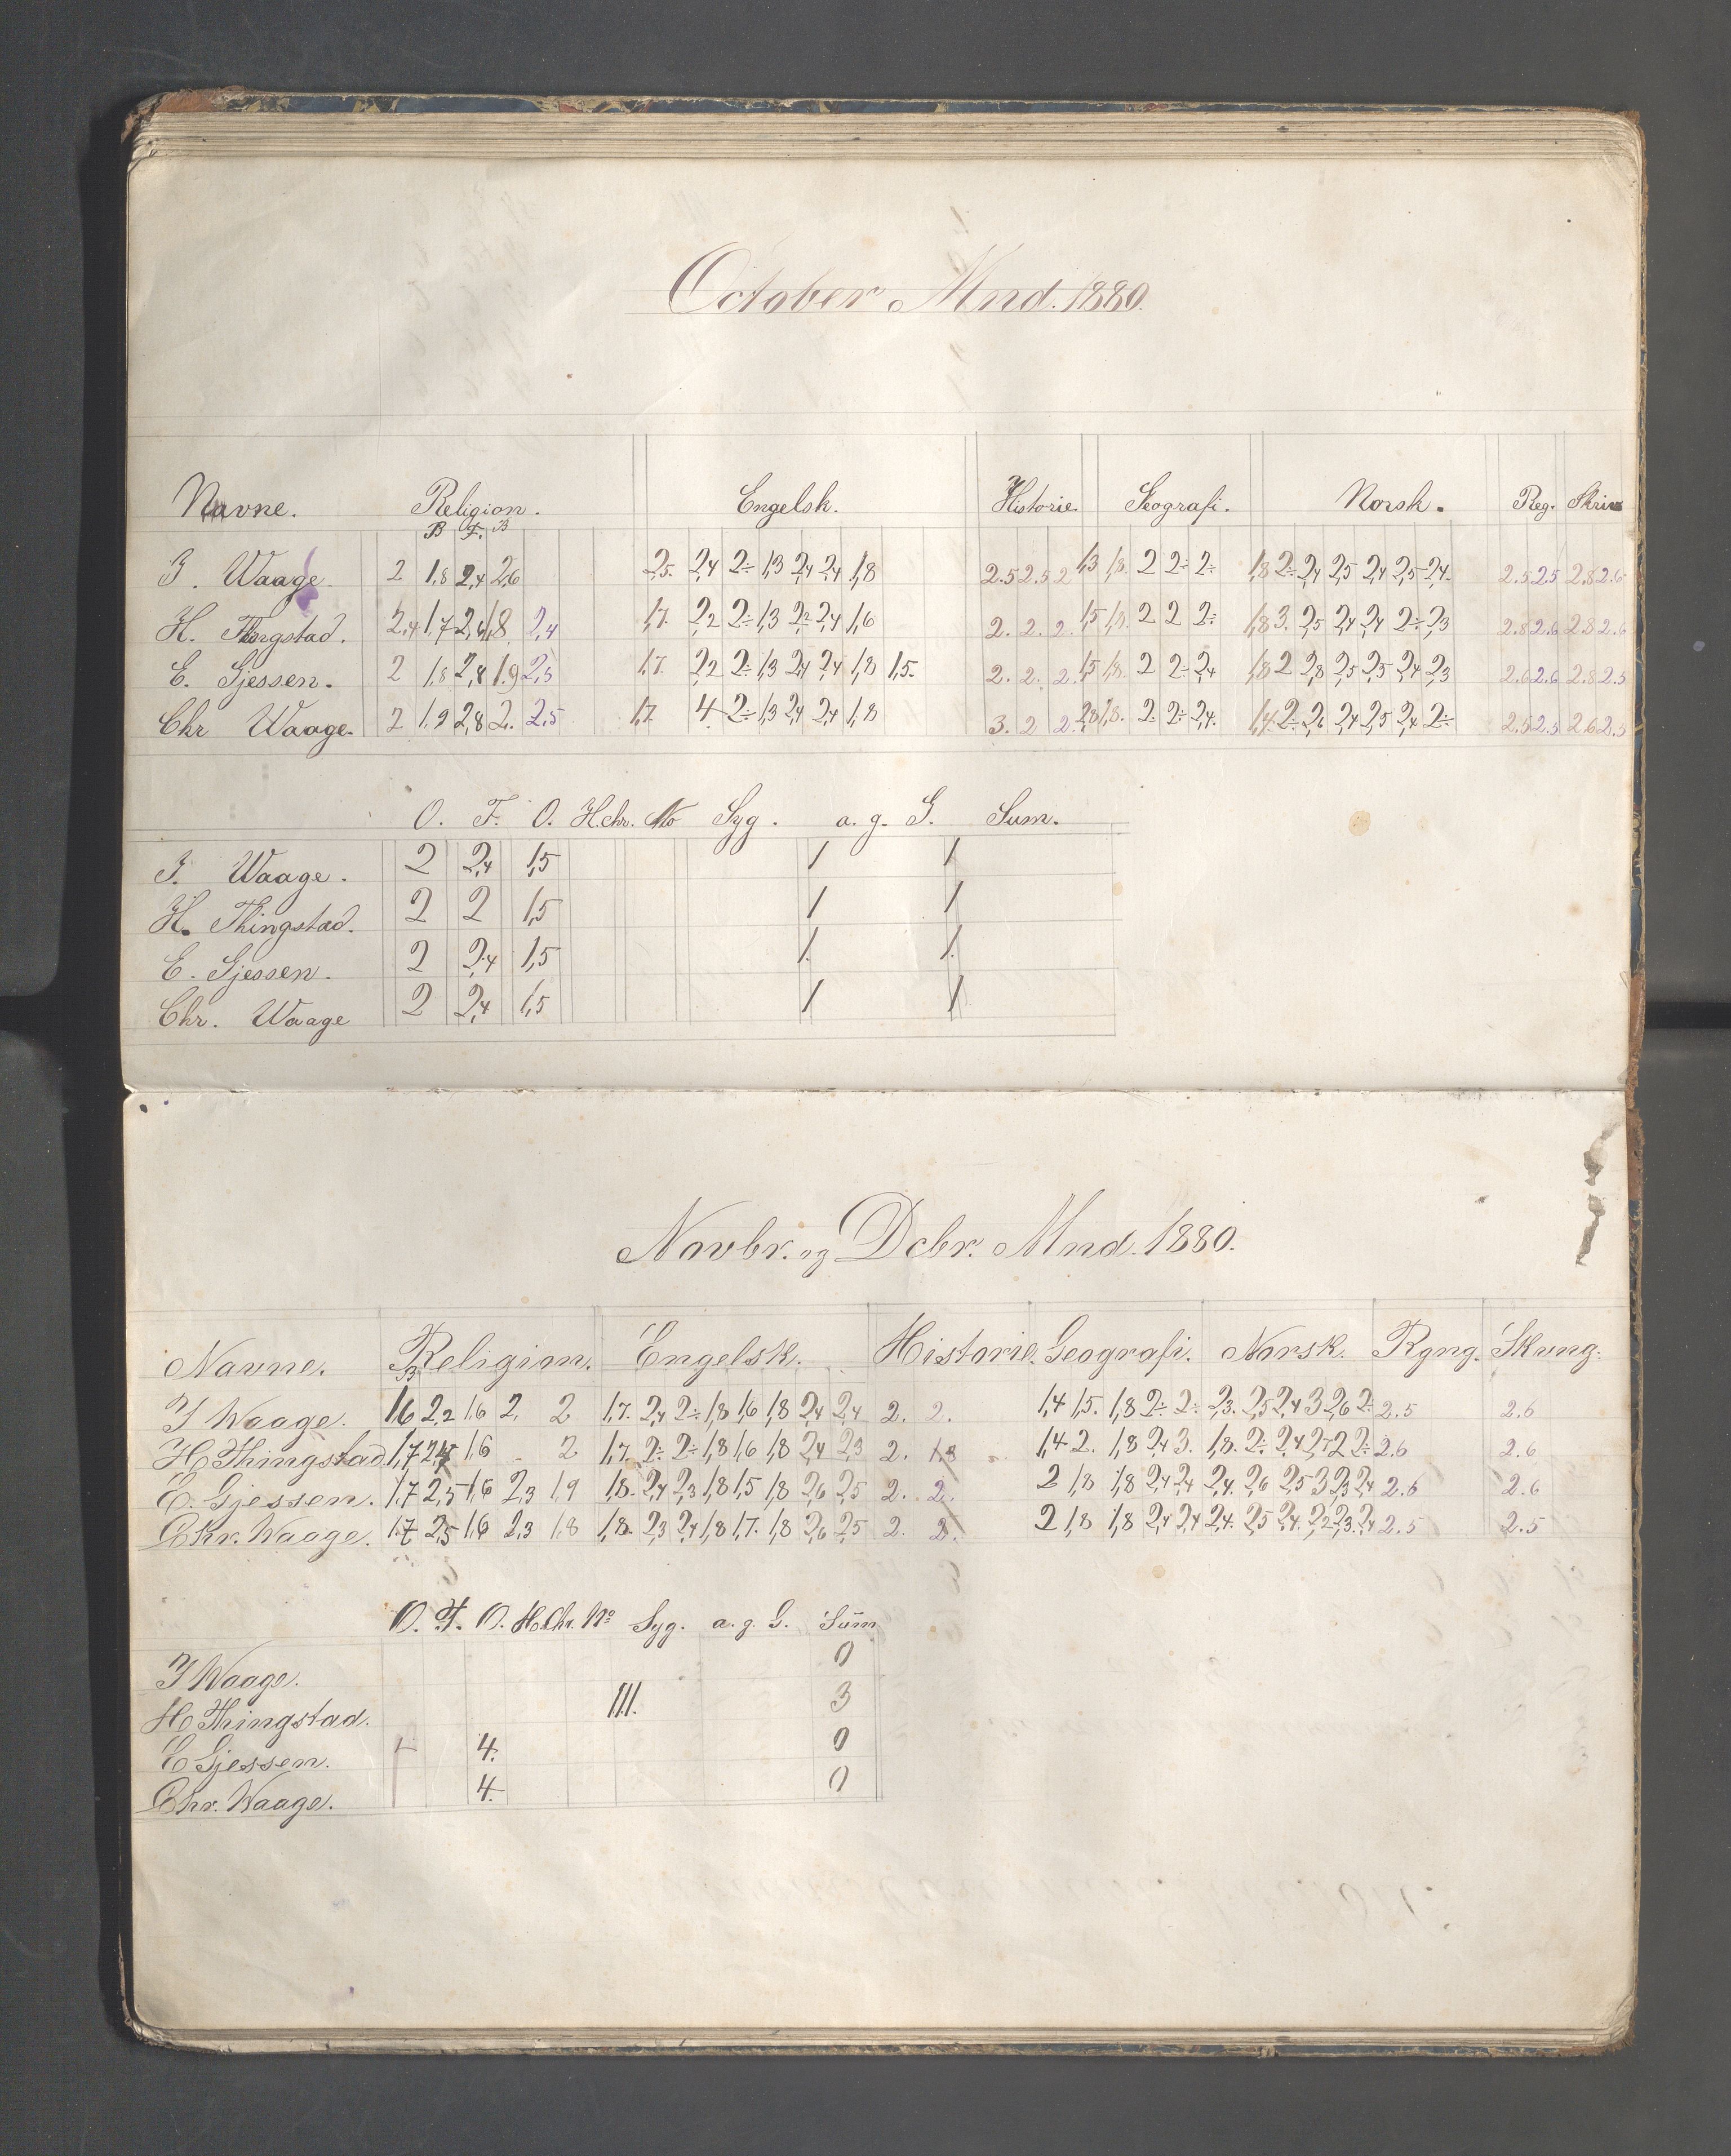 October Mnd. 1880.
Navne. Religion. Engelsk. Historie. Geografi. Norsk. Reg. Skriv
B F. B
J. Waage. 2 1,8 2,4 2,6 2,5. 2,4 2÷ 1,3 2,4 2,4 1,8 2.5 2.5 2 1,3 1,8. 2 2÷ 2÷ 1,8 2÷ 2,4 2,5 2,4 2,5 2,4. 2.5 2.5 2.8 2.6
H. Thingstad. 2,4 1,7 2,4 1,8 2,4 1,7. 2,2 2÷ 1,3 2,2 2,4 1,6 2. 2. 2. 1,5 1,8. 2 2 2÷ 1,8 3. 2,5 2,4 2,4 2÷ 2,3 2.8 2.6 2.8 2.6
E. Gjessen. 2 1,8 2,8 1.9 2,5 1,7. 2,2 2÷ 1,3 2,4 2,4 1,8 1,5. 2. 2. 2. 1,5 1,8. 2 2÷ 2,4 1,8 2 2,8 2,5 2,5 2,4 2,3 2.6 2.6 2.8 2.5
Chr Waage. 2 1.9 2,8 2. 2,5 1,7. 4 2÷ 1,3 2,4 2,4 1,8 3. 2 2. 2,8 1,8. 2. 2÷ 2,4. 1,4. 2÷ 2,6 2,4 2,5 2,4 2÷ 2.5 2.5 2.6 2.5
O. F. O. H.chr. No Syg. a. g. G. Sum.
J. Waage. 2 2,4 1,5 1 1
H. Thingstad. 2 2 1,5 1 1
E. Gjessen. 2 2,4 1,5 1. 1.
Chr. Waage 2 2,4 1,5 1 1
Novbr. og Dcbr. Mnd. 1880.
Navne. Religion. Engelsk. Historie. Geografi. Norsk. Rgng. Skvng.
B
J Waage. 1,6 2,2 1,6 2, 2 1,7. 2,4 2÷ 1,8 1,6 1,8 2,4 2,4 2. 2. 1,4 1,5. 1,8 2÷ 2÷ 2,3. 2,5 2,4 3 2,6 2÷ 2.5 2.6
H Thingstad 1,7 2,4 1,6 2 1,7. 2÷ 2÷ 1,8 1,6 1,8 2,4 2,3 2. 1,8 1,4 2. 1,8 2,4 3. 1,8. 2÷ 2,4 2,7 2 2÷ 2.6 2.6
E. Gjessen. 1,7 2,5 1,6 2,3 1,9 1,8. 2,4 2,3 1,8 1,5 1,8 2,6 2,5 2. 2. 2 1,8 1,8 2,4 2,4 2,4. 2,6 2,5 3 2,3 2,4 2.6 2.6
Chr. Waage. 1,7 2,5 1,6 2,3 1,8 1,8. 2,3 2,4 1,8 1,7. 1,8 2,6 2,5 2. 2. 2 1,8 1,8 2,4 2,4 2,4. 2,5 2,4. 2,2 2,3. 2,4 2.5 2.5
O. F. O. H.Chr. No Syg. a. g. G. Sum
J Waage. 0
H Thingstad. III. 3
E Gjessen. 4. 0
Chr. Waage. 4. 0